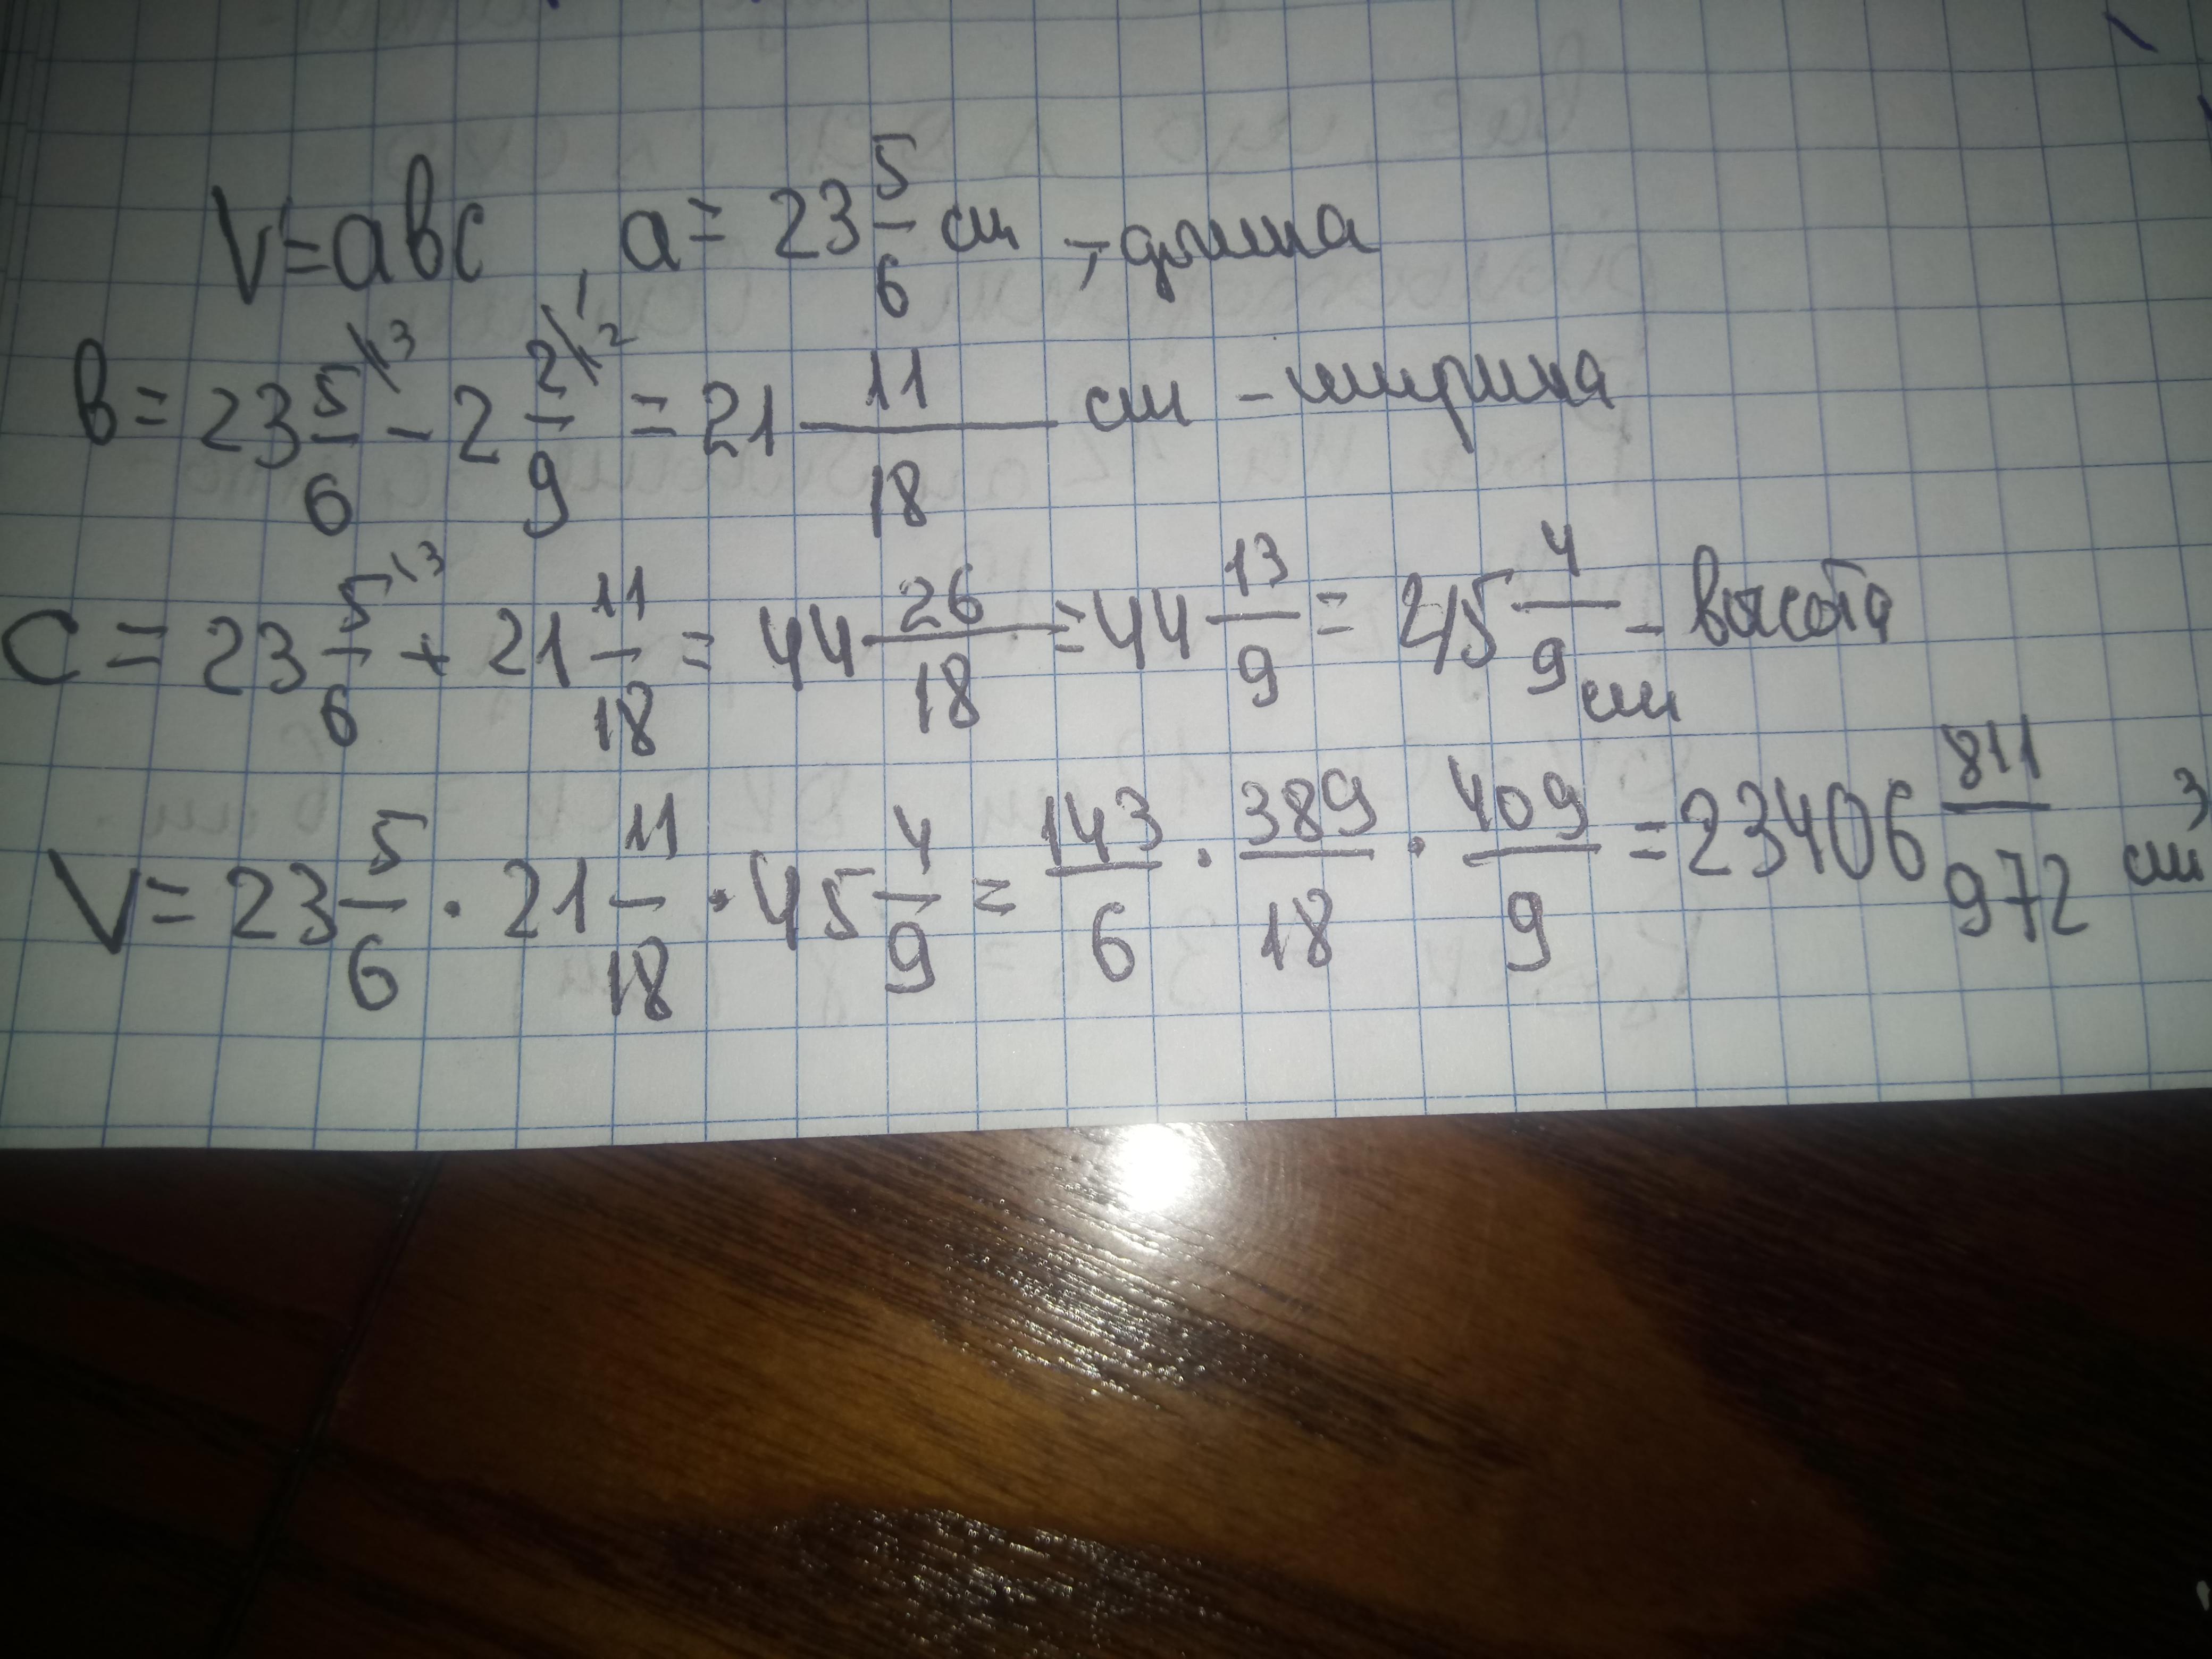 V=abc, a = 23 5/6 см, - длина
b = 23 5/6 \3 - 2 2/9 \2 = 21 11/18 см - ширина
c = 23 5/6 \3 + 21 11/18 = 44 26/18 = 44 13/9 = 45 4/9 см - высота
V = 23 5/6 · 21 11/18 · 45 4/9 = 143/6 · 389/18 · 409/9 = 23406 811/972 см³